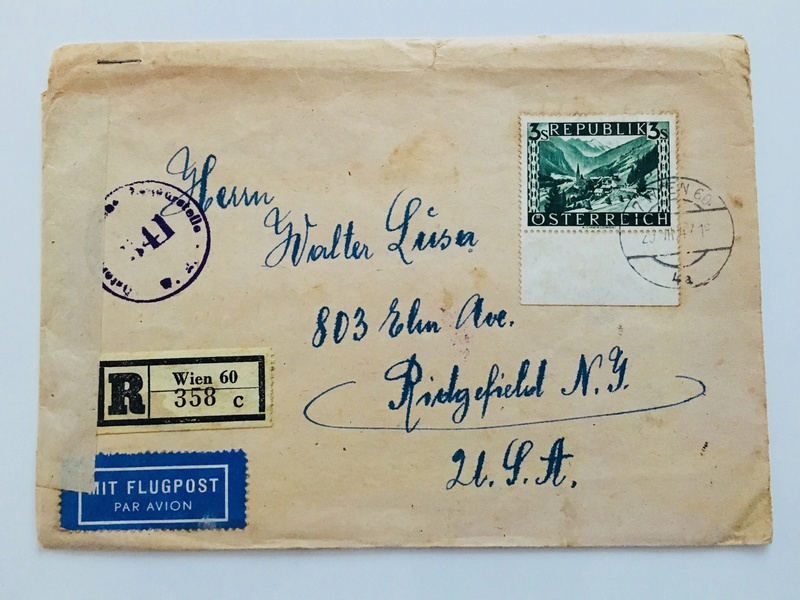 3S REPUBLIK 3S
ÖSTERREICH
WIEN 60
4a
Herrn
Walter Lüsa
803 Elm Ave.
Ridgefield N.J.
U.S.A.
R
Wien 60
358 c
MIT FLUGPOST
PAR AVION